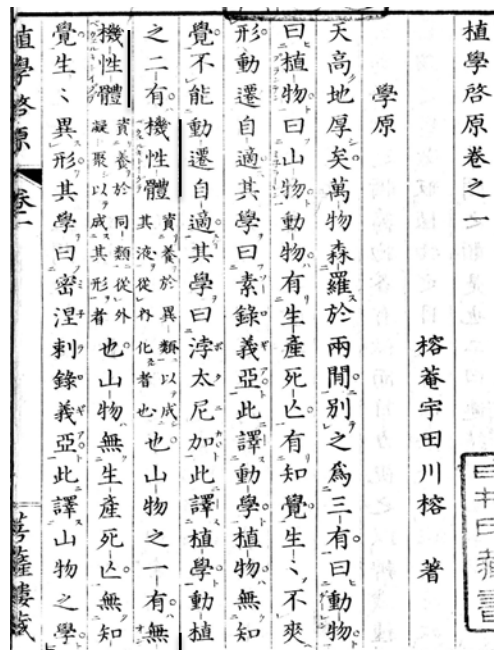 植學啓原卷之一
榕菴宇田川榕 著
學原
天高地厚矣萬物森羅於兩間別之爲三有曰動物
曰植物曰山物動物有生產死亾有知覺生〻不爽
形動遷自適其學曰素錄義亞此譯動學植物無知
覺不能動遷自適其學曰浡太尼加此譯植學動植
之二有機性體資養於異類以成其液從內化者也也山物之一有無
機性體資養於同類從外凝聚以成其形者也山物無生產死亾無知
覺生〻異形其學曰密涅剌錄義亞此譯山物之學
植學啓原 卷一 菩薩樓藏